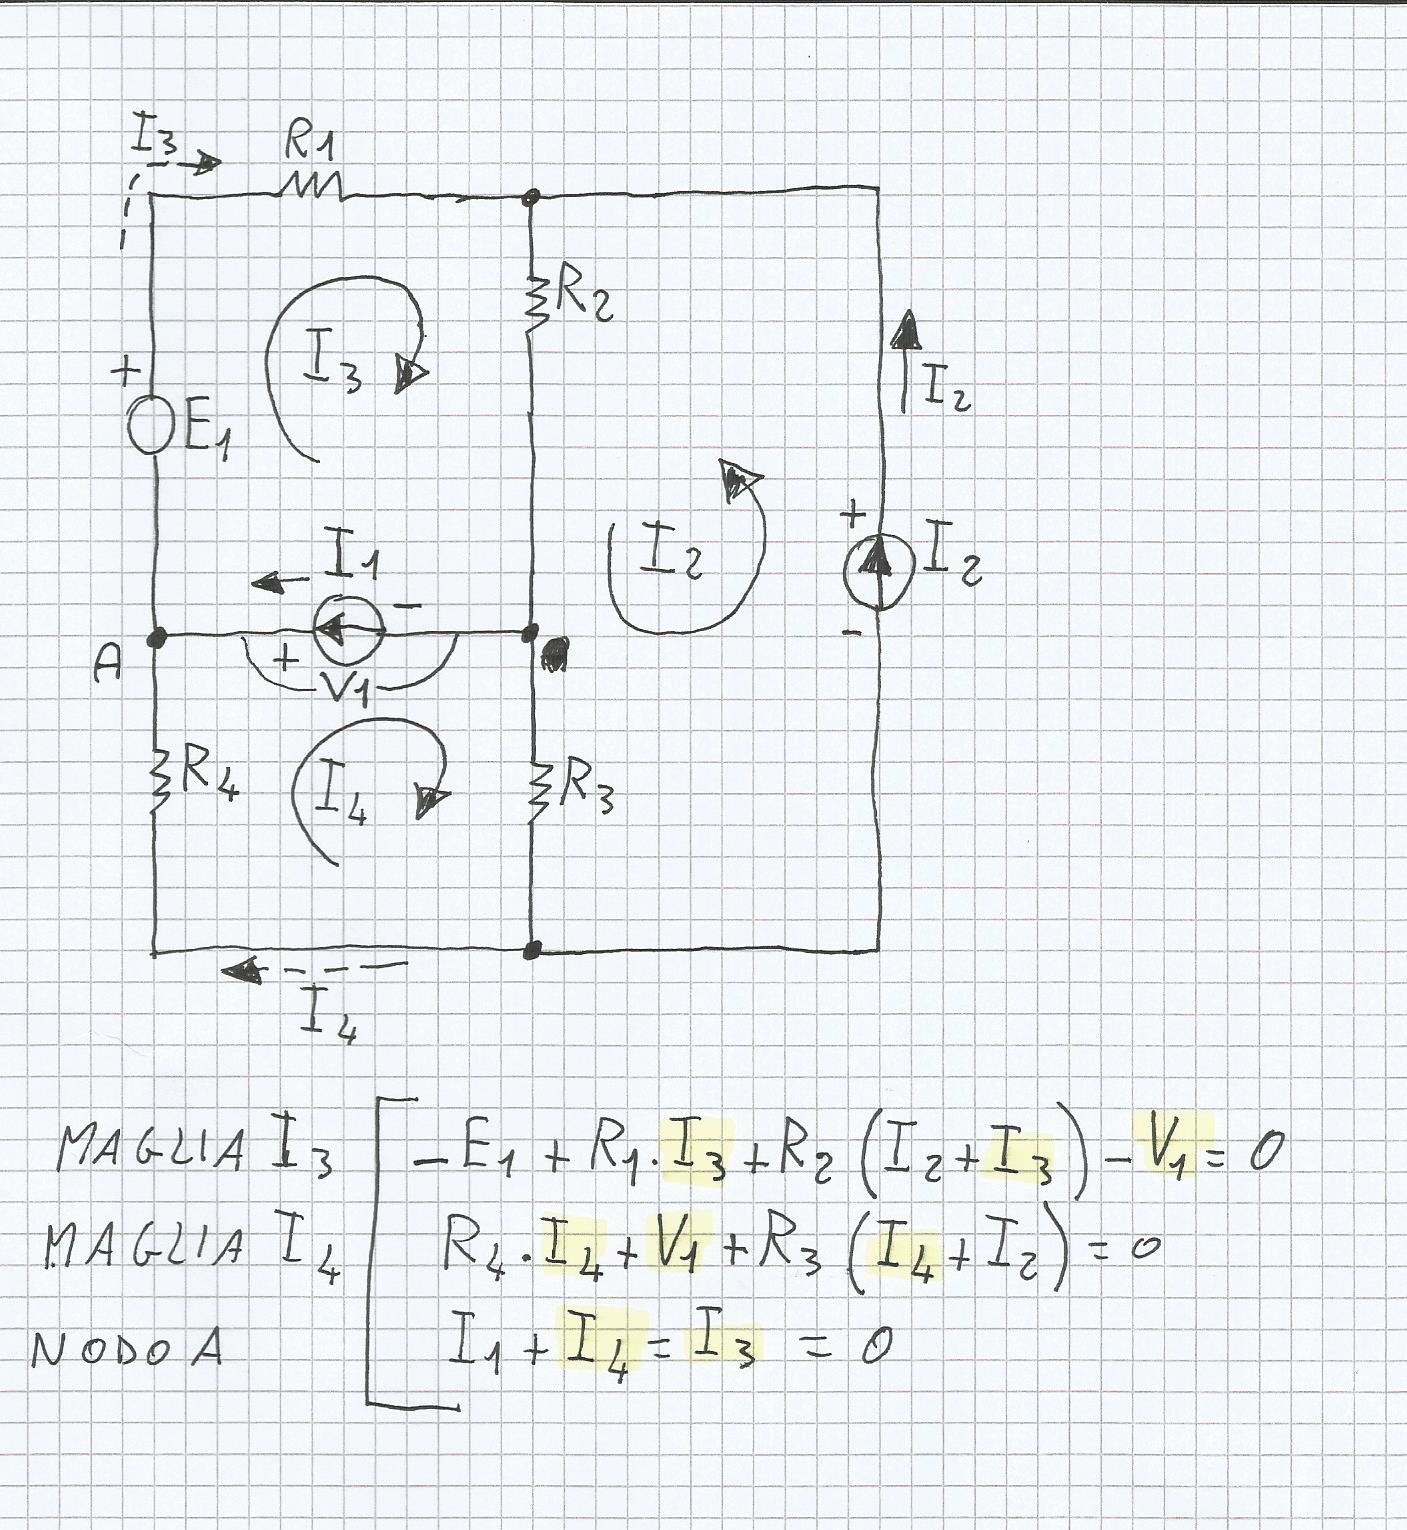 I3
R1
R2
I3
+
E1
I2
I2
+
I2
-
I1
-
A
+
V1
R4
I4
R3
I4
MAGLIA I3 -E1 + R1·I3 + R2 (I2+I3) - V1 = 0
MAGLIA I4 R4·I4 + V1 + R3 (I4+I2) = 0
NODO A I1 + I4 = I3 = 0